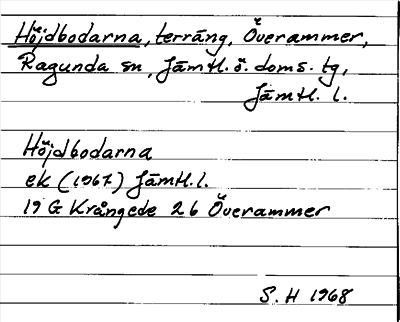 Höjdbodarna, terräng, Överammer,
Ragunda sn, Jämtl. ö. doms. tg,
Jämtl. l.
Höjdbodarna
ek (1967) Jämtl. l.
19 G Krångede 26 Överammer
S. H 1968